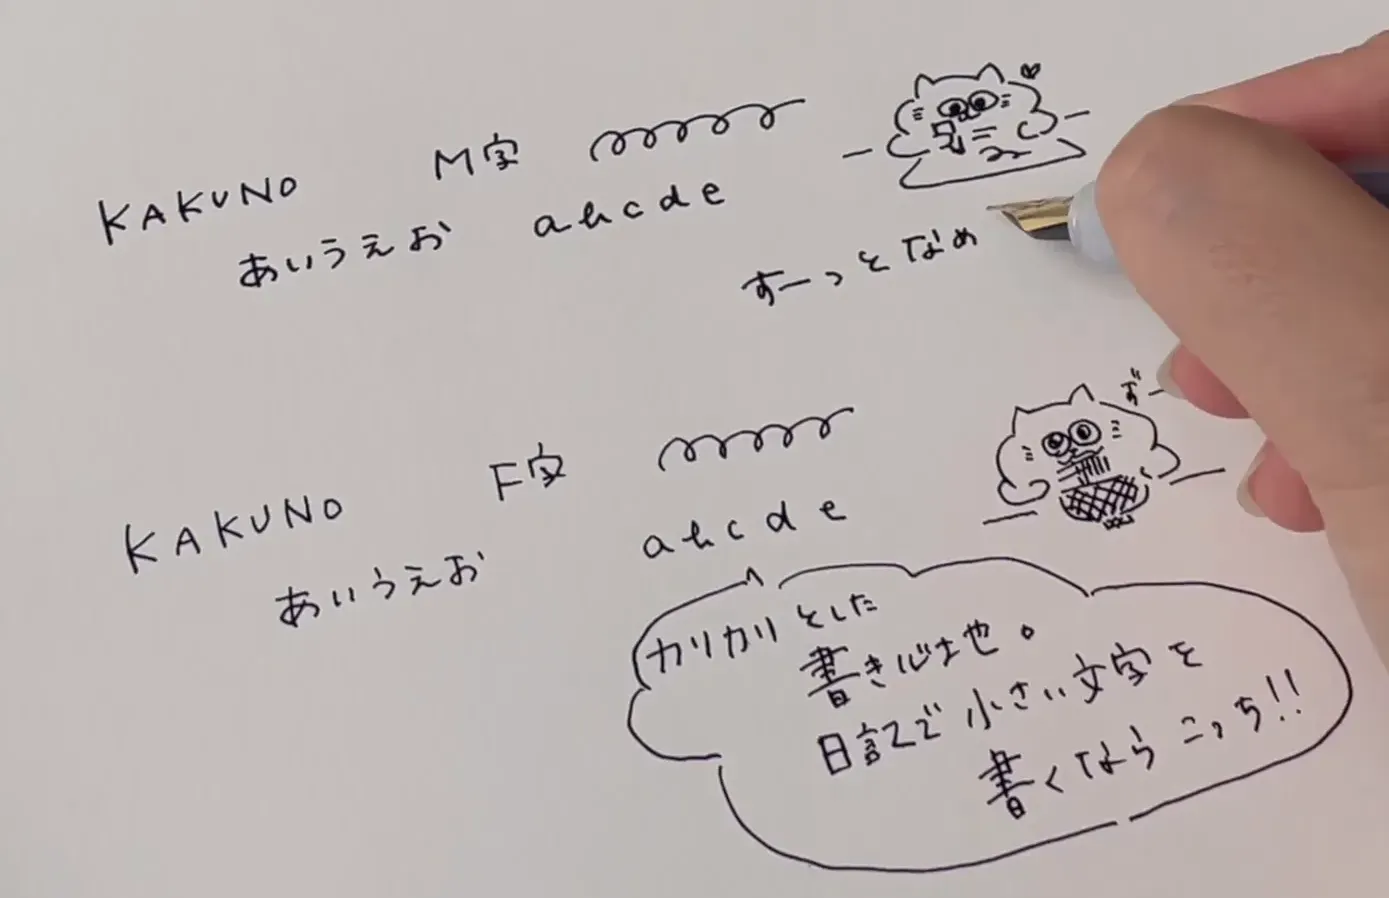 KAKUNO M字
あいうえお abcde
すーっとなめ
ず
KAKUNO F字
あいうえお abcde
カリカリとした
書き心地。
日記で小さい文字を
書くならこっち!!